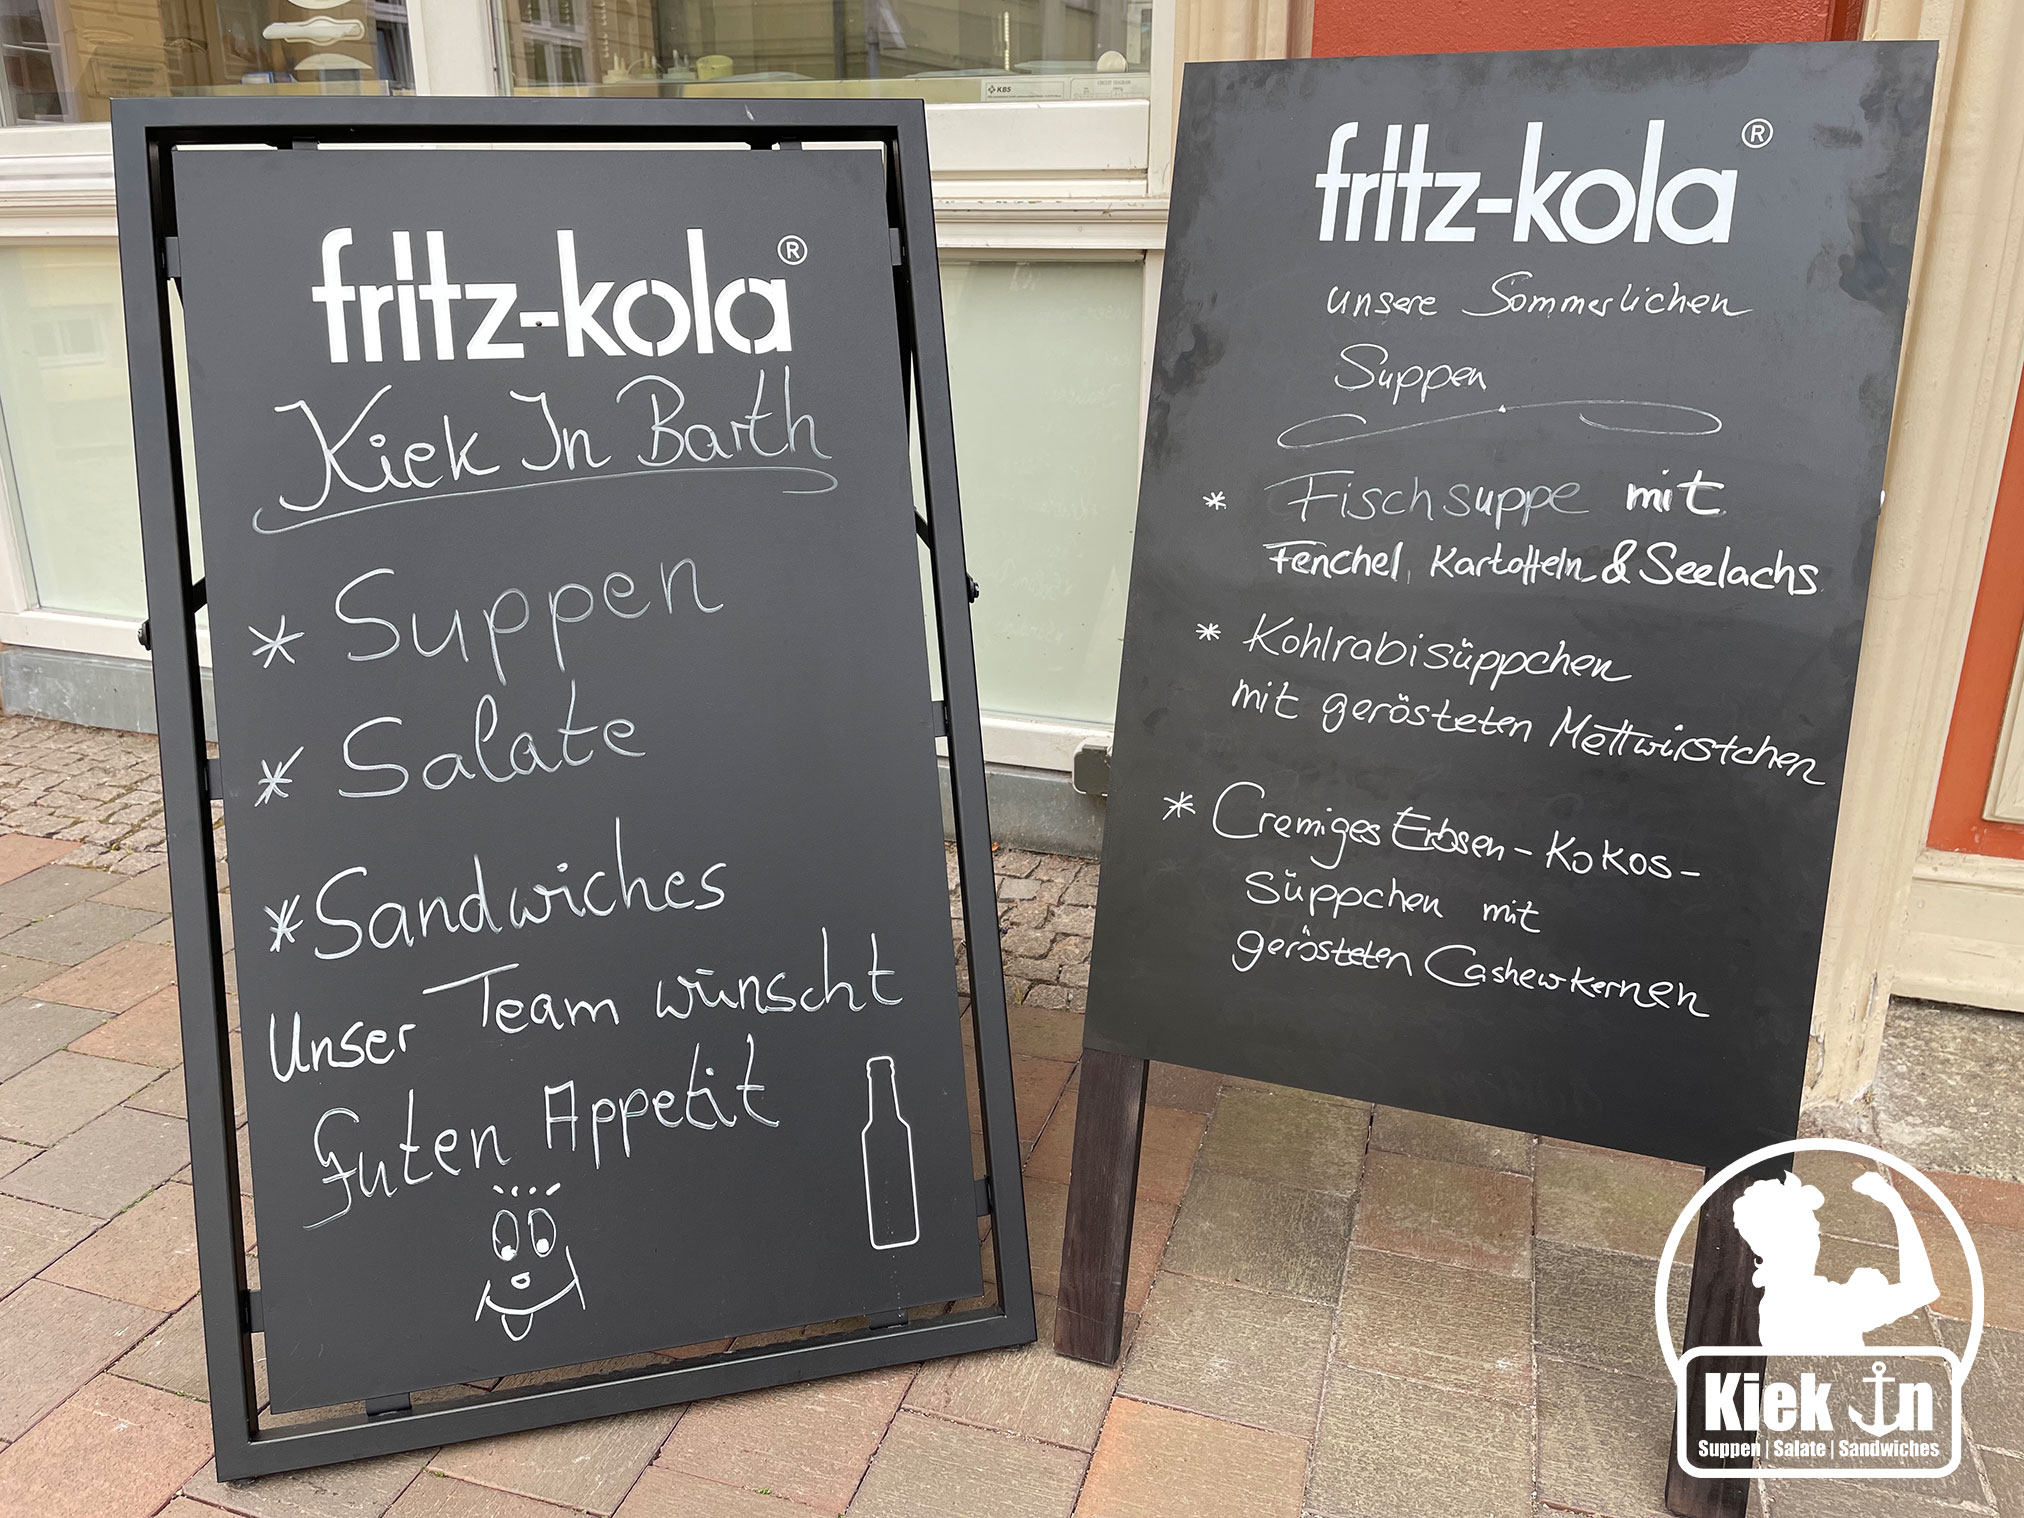 fritz-kola®
Kiek In Barth
* Suppen
* Salate
* Sandwiches
Unser Team wünscht
Guten Appetit
fritz-kola®
unsere Sommerlichen
Suppen
* Fischsuppe mit
Fenchel, Kartoffeln & Seelachs
* Kohlrabisüppchen
mit gerösteten Mettwürstchen
* Cremiges Erbsen-Kokos-
süppchen mit
gerösteten Cashewkernen
KBS
CIRCUIT DIAGRAM
Kiek In
Suppen | Salate | Sandwiches